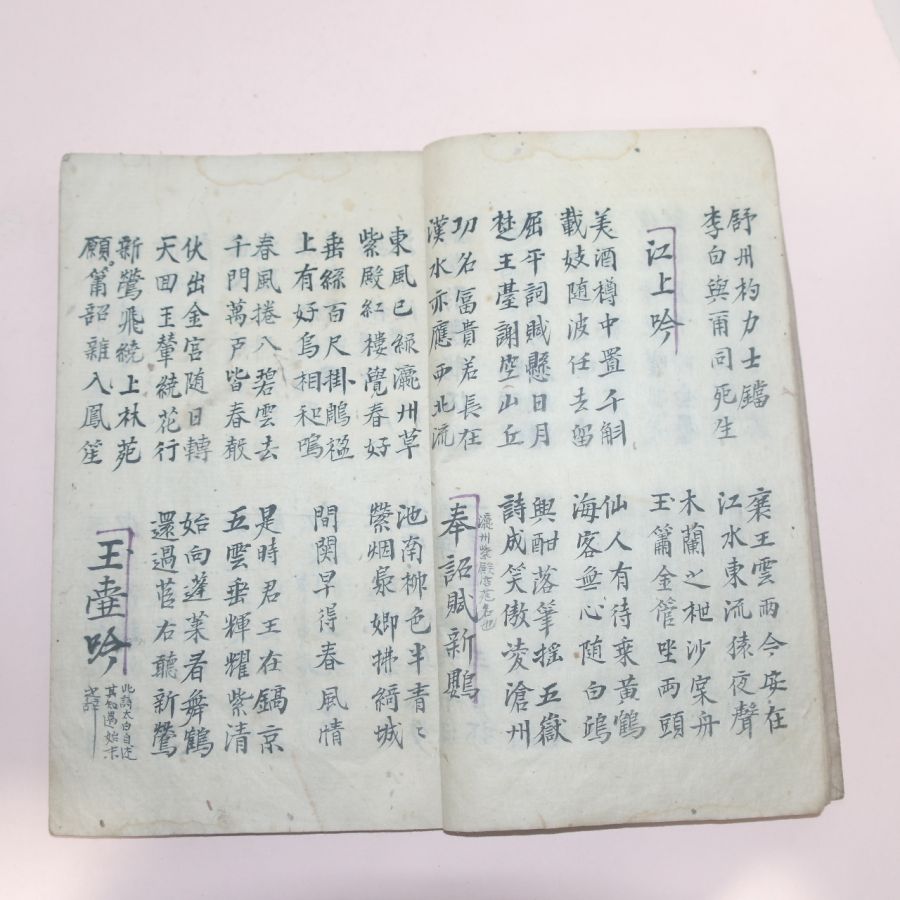 舒州杓力士鐺
李白與爾同死生
襄王雲雨今安在
江水東流猿夜聲
江上吟
木蘭之枻沙棠舟
玉簫金管坐兩頭
美酒樽中置千斛
載妓随波任去留
仙人有待乘黃鶴
海客無心随白鷗
屈平詞賦懸日月
楚王臺謝空山丘
興酣落筆摇五嶽
詩成笑傲凌滄州
功名冨貴若長在
漢水亦應西北流
奉詔賦新鸎
瀛州紫殿唐苑名也
東風已緑瀛州草
紫殿紅樓覺春好
池南柳色半青〻
縈烟裊娜拂綺城
垂絲百尺掛鵰楹
上有好鳥相和鳴
間関早得春風情
春風捲入碧雲去
千門萬戸皆春聲
是時君王在鎬京
五雲垂輝耀紫清
仗出金宮随日轉
天回玉輦繞花行
始向蓬莱看舞鶴
還過茝右聽新鶯
新鶯飛繞上林苑
願簫韶雜入鳳笙
玉壺吟
此詩太白自述
其知遇始末
之辞